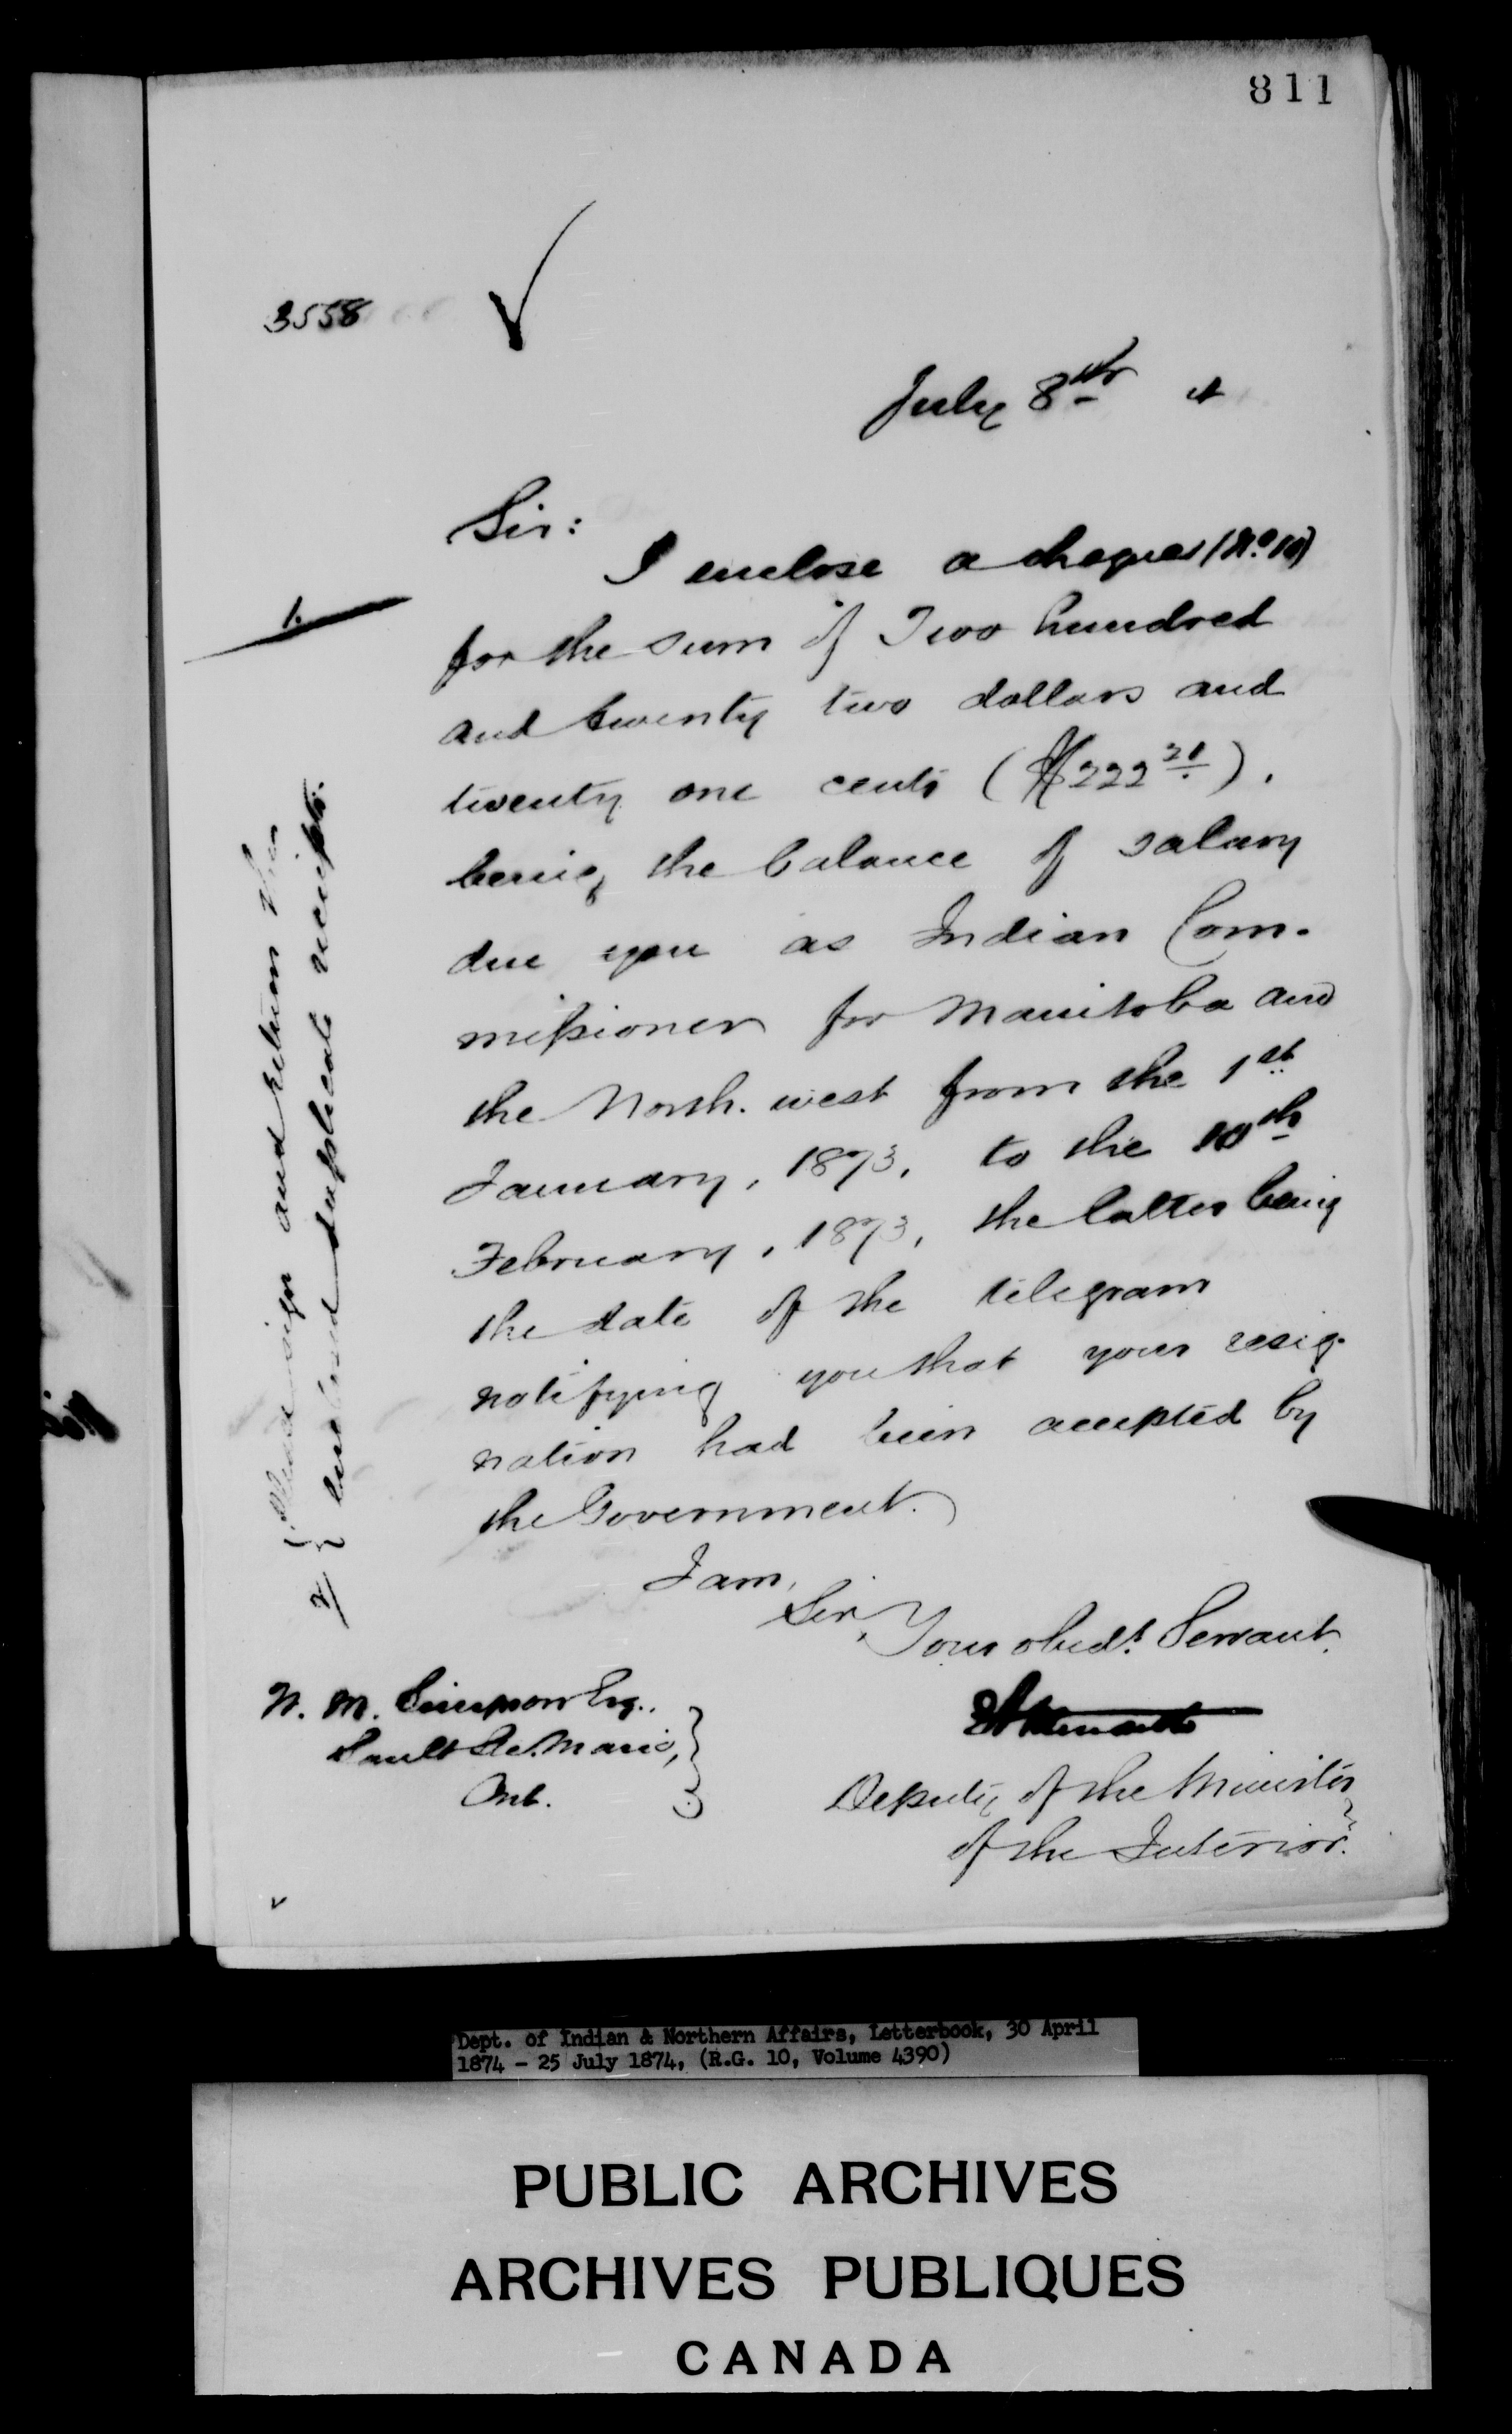 811
3558
July 8th 4
Sir:
I enclose a cheque (No. 10)
1.
for the sum of Two hundred
and twenty two dollars and
twenty one cents ($222 21).
being the balance of salary
due you as Indian Com-
missioner for Manitoba and
the North. west from the 1st
January, 1873, to the 10th
February, 1873, the latter being
the date of the telegram
notifying you that your resig-
nation had been accepted by
the Government.
I am,
Sir,
Your obedt. Servant.
Deputy of the Minister
of the Interior.
W. M. Simpson Esq.,
Sault Ste. Marie,
Ont.
2/ { Please sign and return the
enclosed duplicate receipts.
Dept. of Indian & Northern Affairs, Letterbook, 30 April
1874 - 25 July 1874, (R.G. 10, Volume 4390)
PUBLIC ARCHIVES
ARCHIVES PUBLIQUES
CANADA